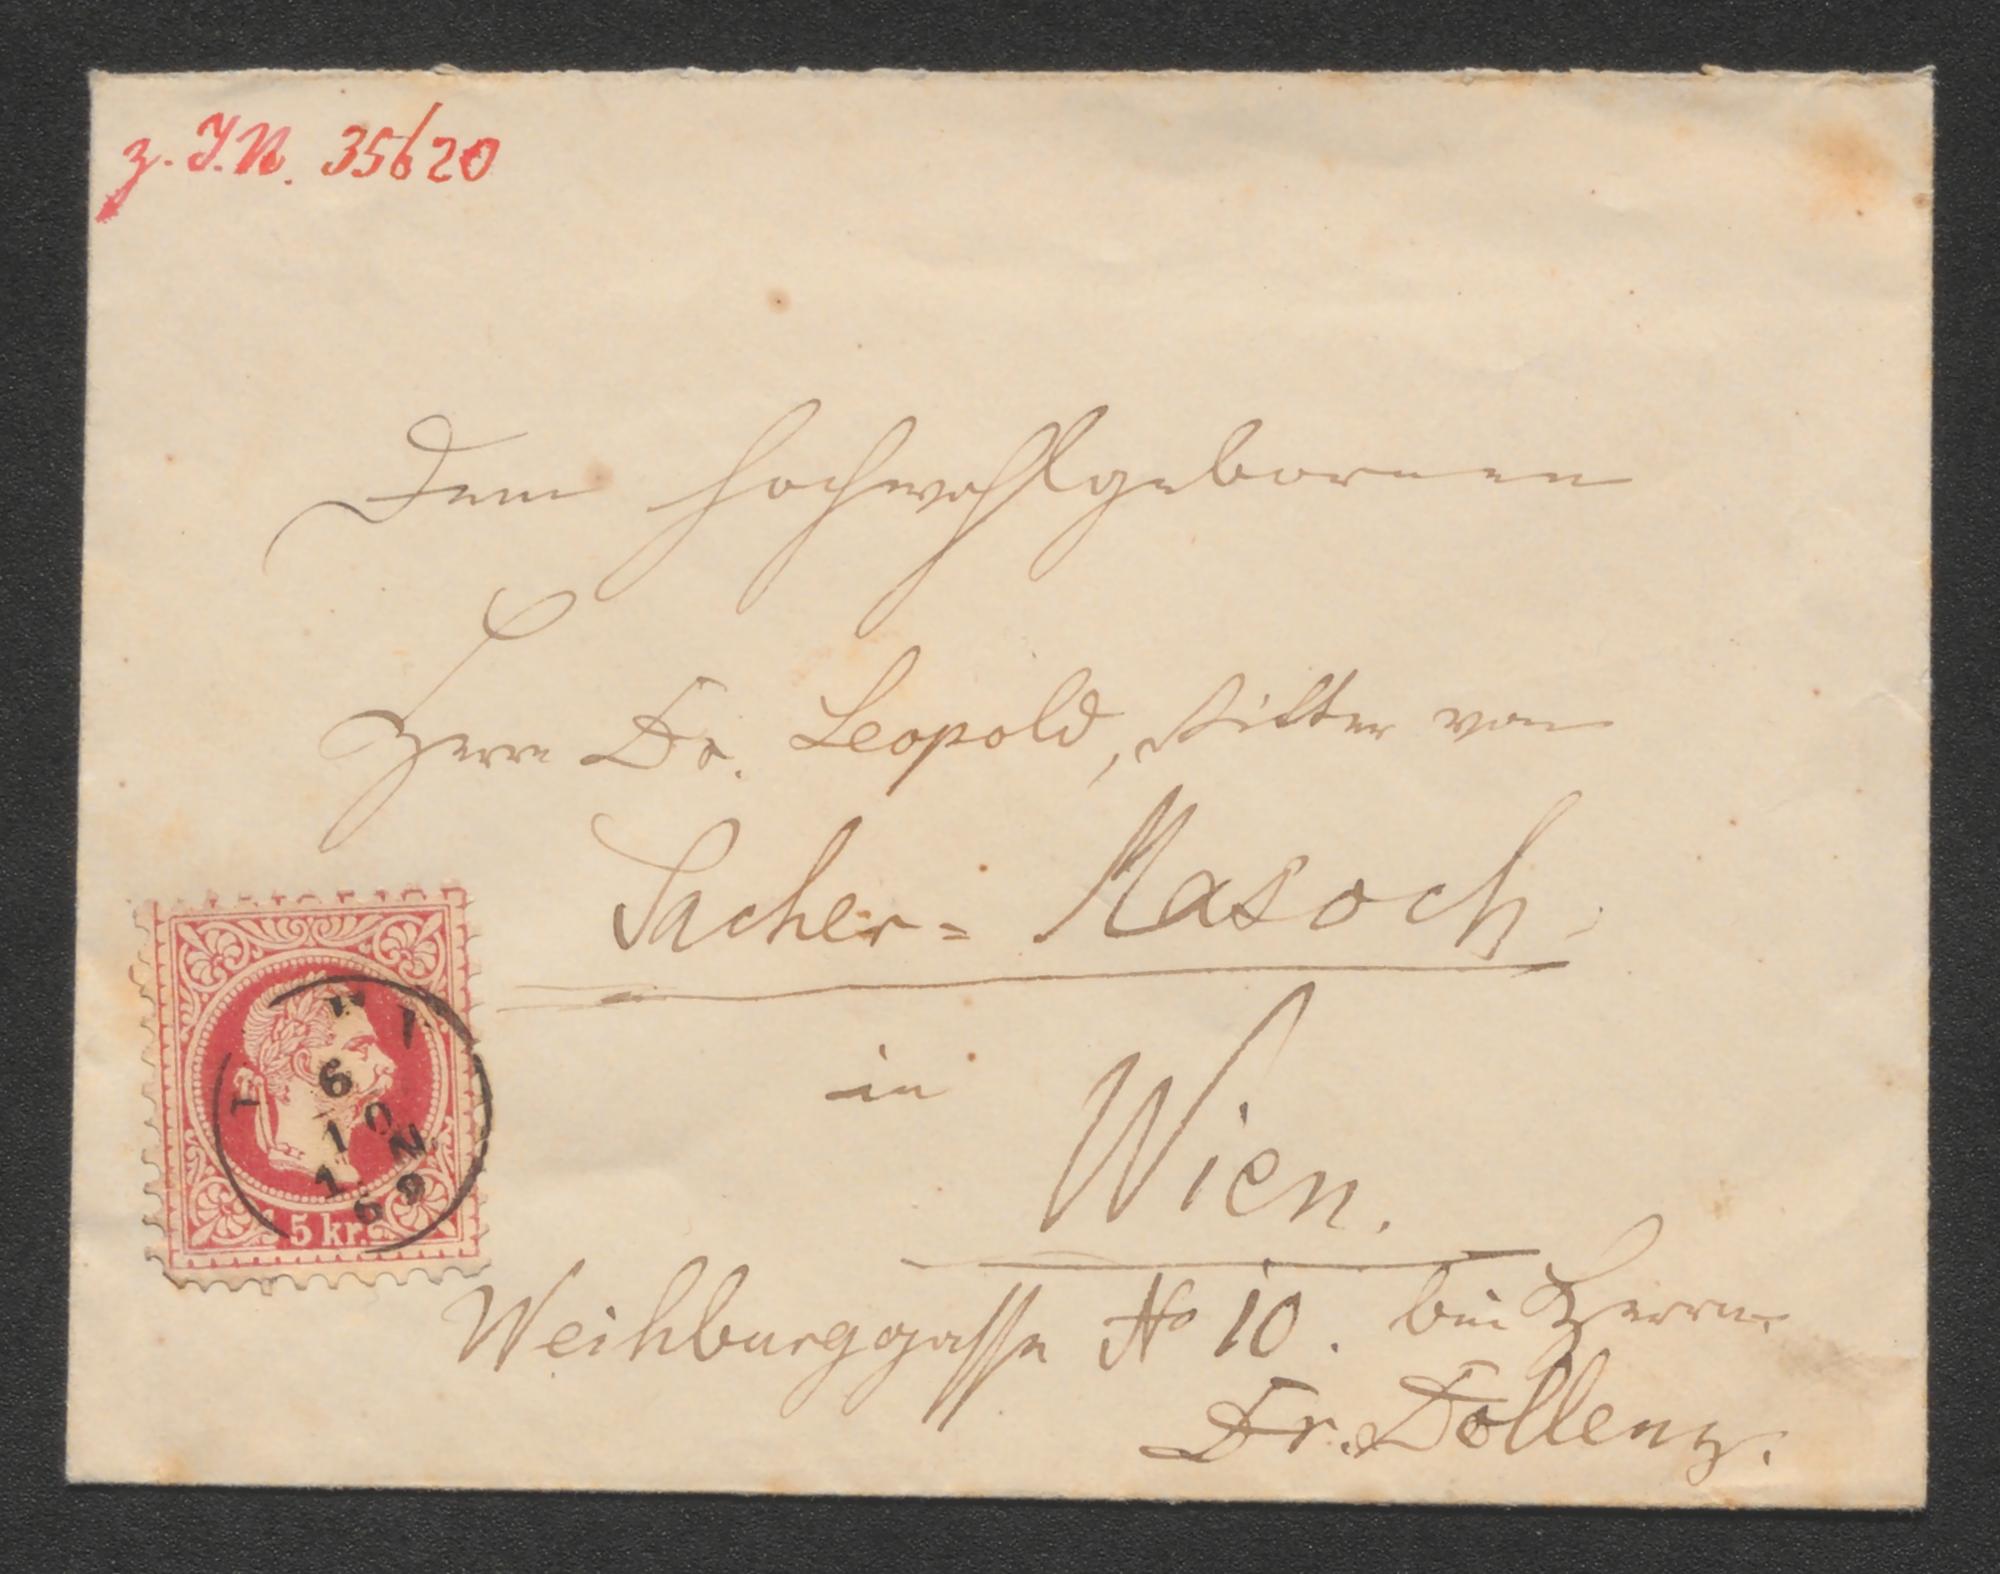 z. I.N. 35620
Dem Hochwohlgebornen
Herrn Dr. Leopold, Ritter von
Sacher-Masoch.
in Wien.
Weihburggasse No 10. bei Herrn
Dr. Dollenz.
6
10
1 N
69
5 kr.